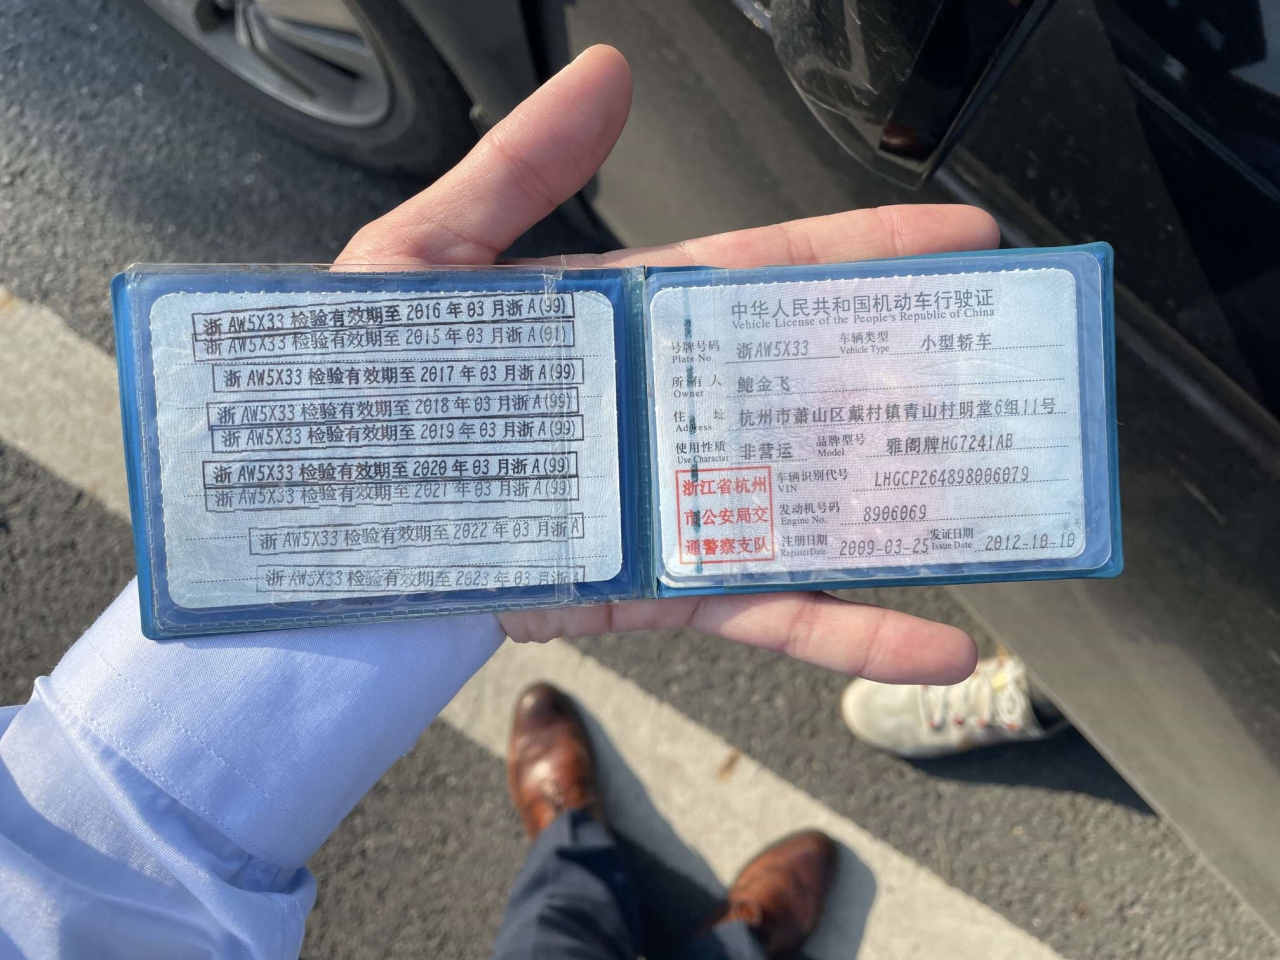 浙 AW5X33 检验有效期至 2016 年 03 月浙 A(99)
浙 AW5X33 检验有效期至 2015 年 03 月浙 A(01)
浙 AW5X33 检验有效期至 2017 年 03 月浙 A(99)
浙 AW5X33 检验有效期至 2018 年 03 月浙 A(99)
浙 AW5X33 检验有效期至 2019 年 03 月浙 A(99)
浙 AW5X33 检验有效期至 2020 年 03 月浙 A(99)
浙 AW5X33 检验有效期至 2021 年 03 月浙 A(99)
浙 AW5X33 检验有效期至 2022 年 03 月浙 A
浙 AW5X33 检验有效期至 2023 年 03 月浙 A
中华人民共和国机动车行驶证
Vehicle License of the People's Republic of China
号牌号码 浙AW5X33 车辆类型 小型轿车
Plate No. Vehicle Type
所有人 鲍金飞
Owner
住址 杭州市萧山区戴村镇青山村明堂6组11号
Address
使用性质 非营运 品牌型号 雅阁牌HG7241AB
Use Character Model
浙江省杭州
市公安局交
通警察支队
车辆识别代号 LHGCP264898006079
VIN
发动机号码 8906069
Engine No.
注册日期 2009-03-25 发证日期 2012-10-10
Register Date Issue Date